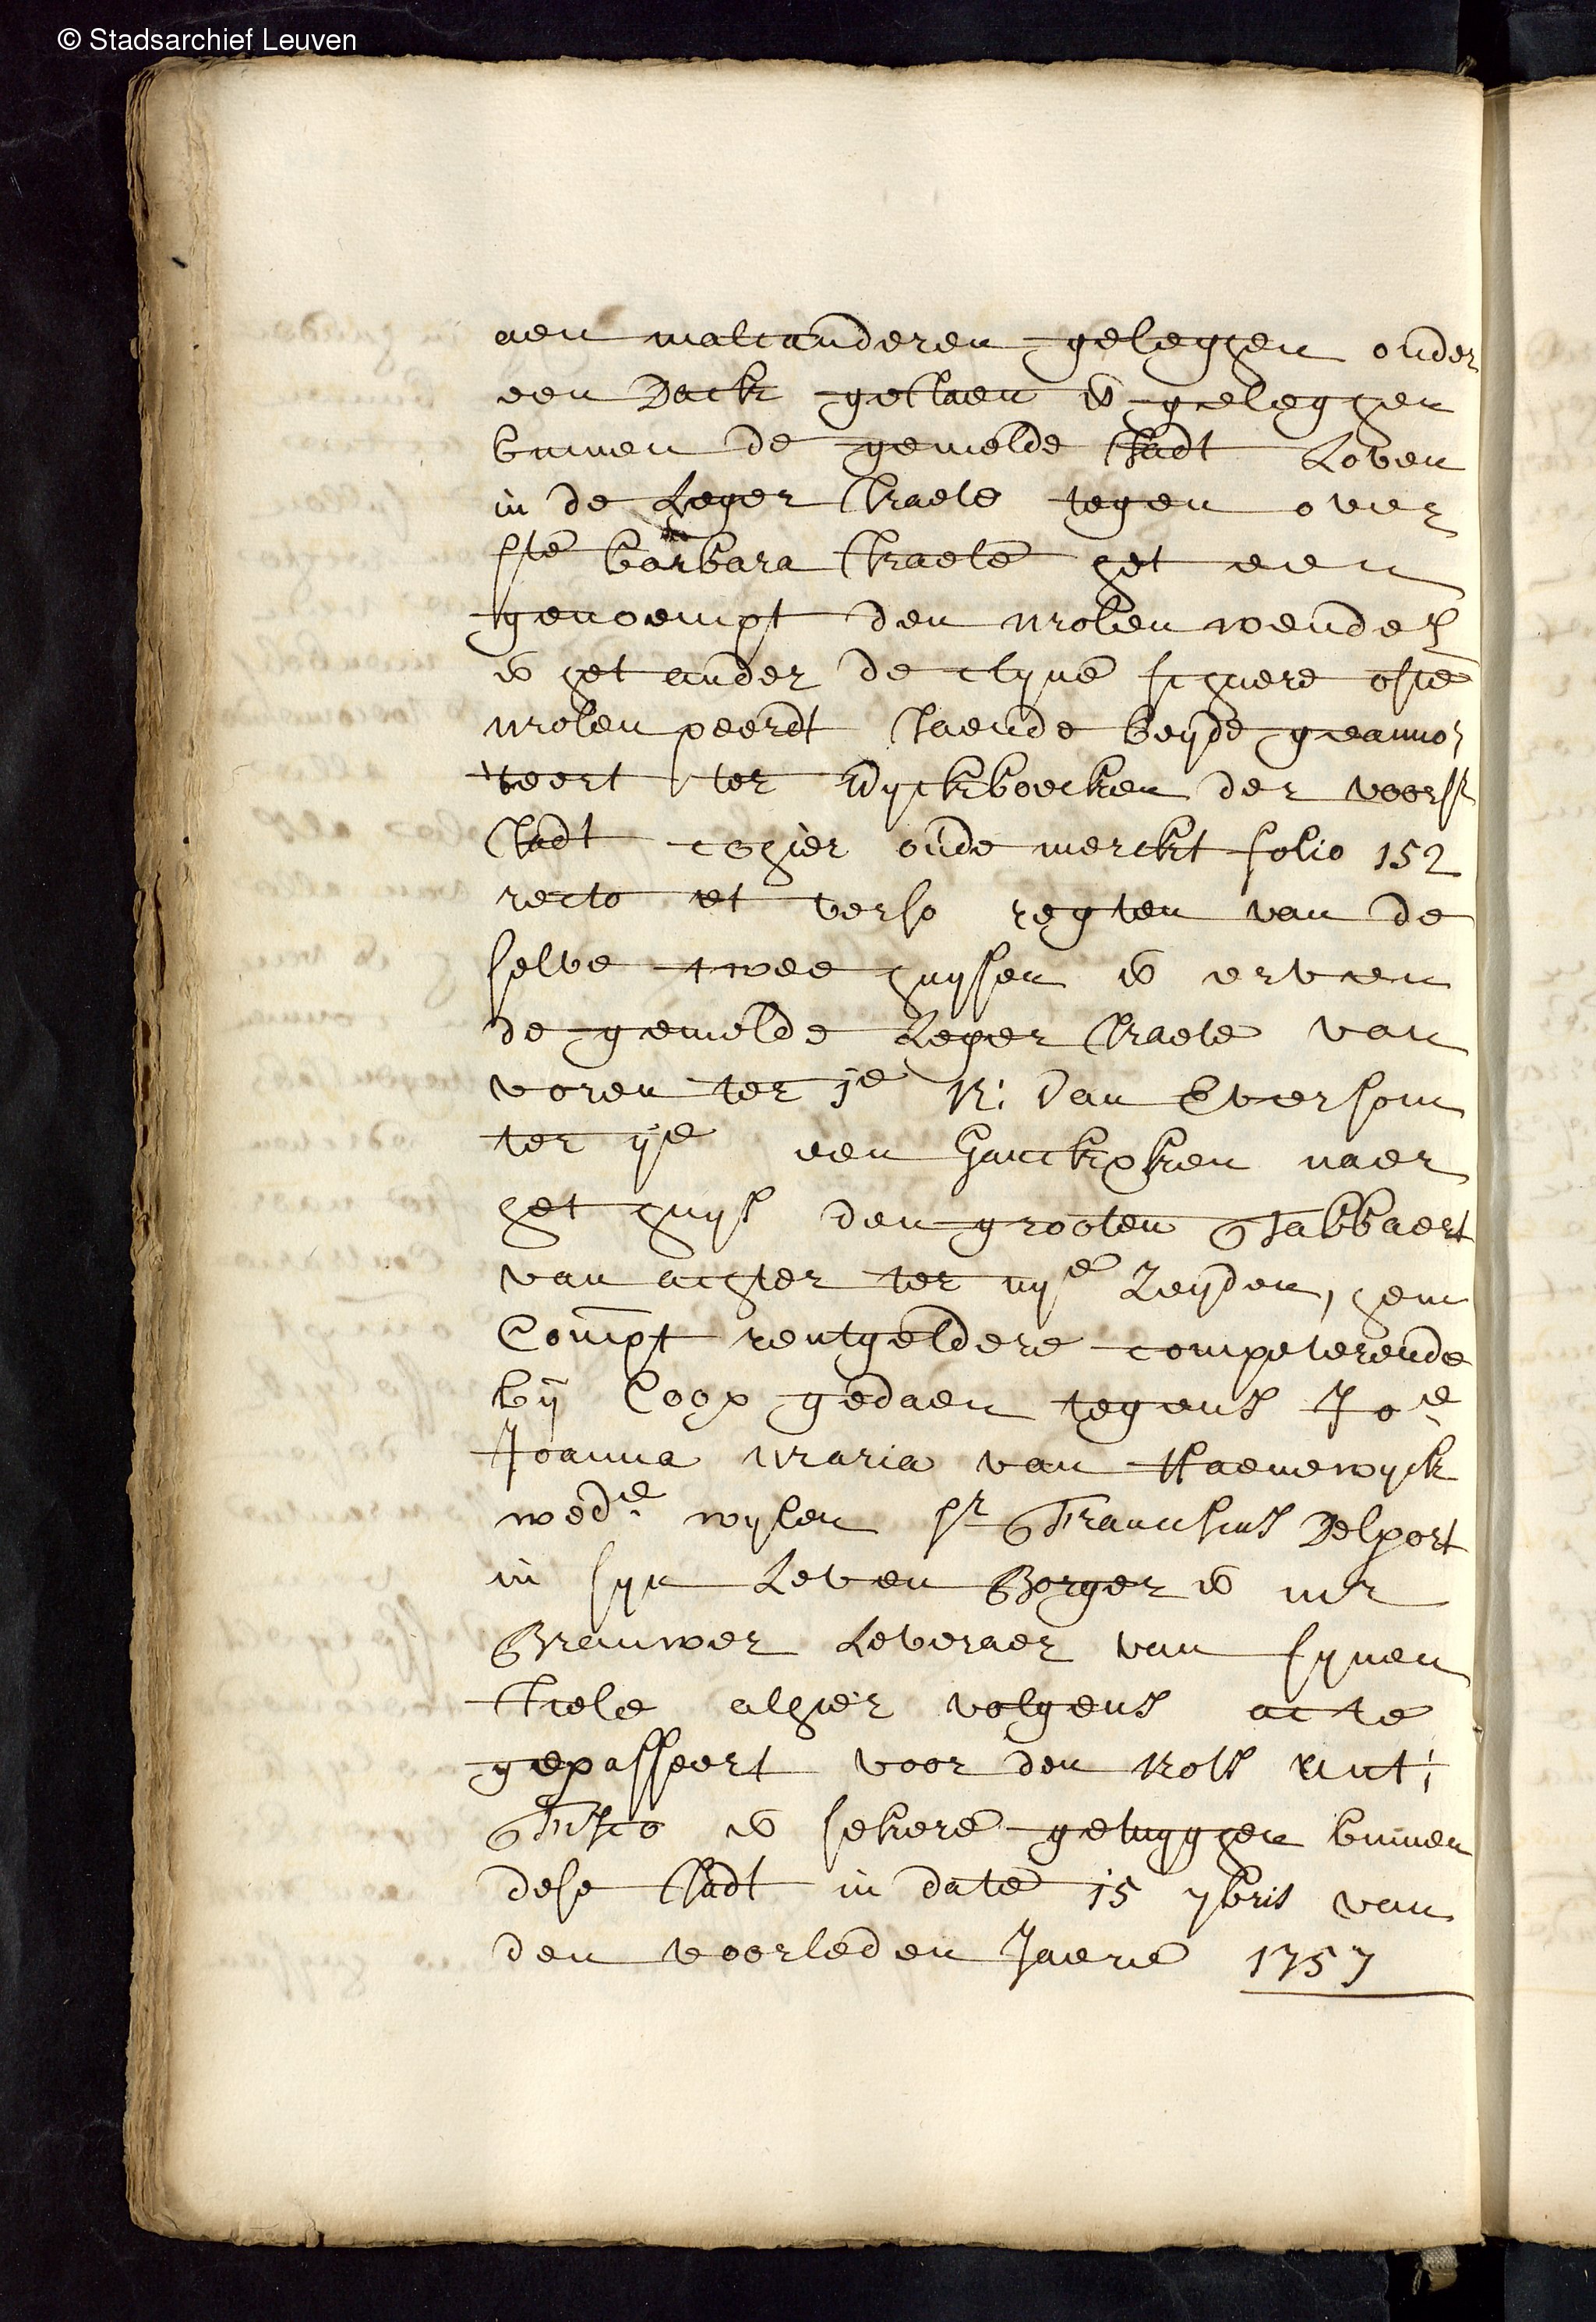 © Stadsarchief Leuven
aen malcanderen geleghen onder
een Dack gestaen & geleghen
binnen de gemelde stadt Loven
in de Leyer straete tegen over
ste barbara straete het een
genoempt den molen wendel
& het ander de clyne schuere ofte
molen peerdt staende beyde geanno-
teert ter Wyckboecken der voorss
stadt cohier oude merckt folio 152
recto et verso regten van de
selve twee huysen & erven
de gemelde Leyer straete van
voren ter je N: Van Eversom
ter ije een Ganckxken naer
het huys den grooten Tabbaert
van achter ter iije Zeyden, hem
Compt rentgeldere competerende
bij Coop gedaen tegens Joe
Joanna Maria van Haenewyck
wede wylen sr Franchus Delport
in syn Leven Borger & mr
Brauwer Leveraer van synen
stiele alhier volgens acte
gepasseert voor den Nots Ant:
Fisco & sekere getuyghen binnen
dese stadt in date 15 7bris van
den voorleden Jaere 1757